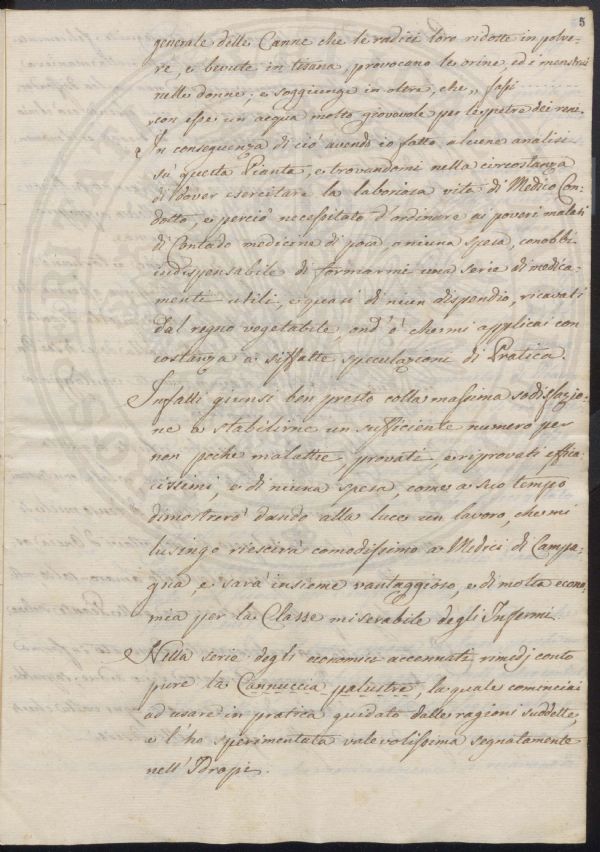 5
generale delle Canne che le radici loro ridotte in polve-
re, e bevute in tisana, provocano le orine, ed i menstrui
nelle donne; e soggiunge in oltre, che „ fassi
con esse un acqua molto giovevole per le pietre dei reni.
In conseguenza di ciò avendo io fatto alcune analisi
su questa Pianta, e trovandomi nella circostanza
di dover esercitare la laboriosa vita di Medico Con-
dotto, e perciò necessitato d'ordinare ai poveri malati
di Contado medicine di poca, o niuna spesa, conobbi
indispensabile di formarmi una serie di medica-
menti utili, e quasi di niun dispendio, ricavati
dal regno vegetabile, ond'è che mi applicai con
costanza a siffatte speculazioni di Pratica.
Infatti giunsi ben presto colla massima sodisfazio-
ne a stabilirne un sufficiente numero per
non poche malattie, provati, e riprovati effica-
cissimi, e di niuna spesa, come a suo tempo
dimostrerò dando alla luce un lavoro, che mi
lusingo riescirà comodissimo a Medici di Campa-
gna, e sarà insieme vantaggioso, e di molta econo-
mia per la Classe miserabile degli Infermi.
Nella serie degli economici accennati rimedj conto
pure la Cannuccia palustre, la quale cominciai
ad usare in pratica guidato dalle ragioni suddette,
e l'ho sperimentata valevolissima segnatamente
nell'Idropi.